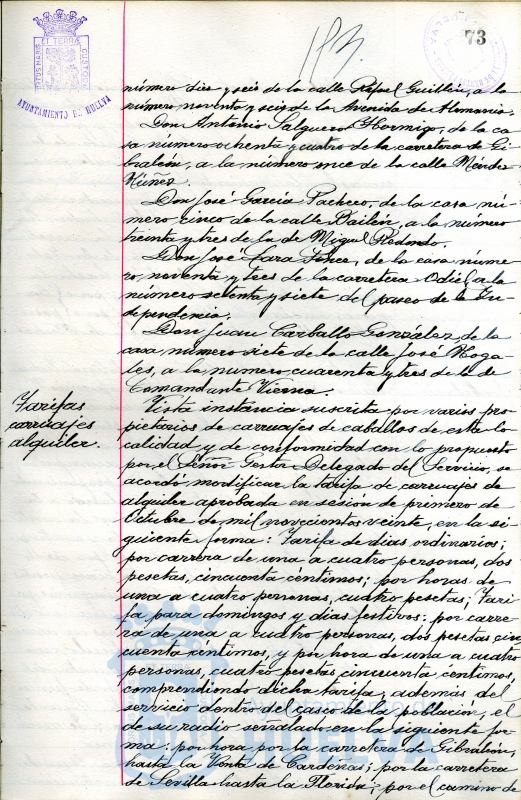 183.
73
AYUNTAMIENTO DE HUELVA
número diez y seis de la calle Rafael Guillén, a la
número noventa y seis de la Avenida de Alemania.
Don Antonio Salguero Hormigo, de la ca
sa número ochenta y cuatro de la carretera de Gi-
braleón, a la número once de la calle Méndez
Núñez.
Don José García Pacheco, de la casa nú-
mero cinco de la calle Bailén, a la número
treinta y tres de la de Miguel Redondo.
Don José Jara de la casa núme
ro, noventa y tres de la carretera Odiel, a la
número setenta y siete del paseo de la In-
dependencia.
Don Juan Carballo González, de la
casa número siete de la calle José Noga-
les, a la número cuarenta y tres de la de
Comandante Vierna.
Tarifas
carruajes
alquiler.
Vista instancia suscrita por varios pro
pietarios de carruajes de caballos de esta lo
calidad y de conformidad con lo propuesto
por el Señor Gestor Delegado del Servicio, se
acordó modificar la tarifa de carruajes de
alquiler aprobada en sesión de primero de
Octubre de mil novecientos veinte, en la si-
guiente forma: Tarifa de días ordinarios;
por carrera de una a cuatro personas, dos
pesetas, cincuenta céntimos; por horas de
una a cuatro personas, cuatro pesetas; Tari
fa para domingos y días festivos: por carre
ra de una a cuatro personas, dos pesetas cin
cuenta céntimos, y por hora de una a cuatro
personas, cuatro pesetas, cincuenta céntimos,
comprendiendo dicha tarifa, además del
servicio dentro del casco de la población, el
de su radio señalado en la siguiente for
ma: por hora por la carretera de Gibraleón,
hasta la Venta de Cardeñas; por la carretera
de Sevilla hasta la Florida; por el camino de